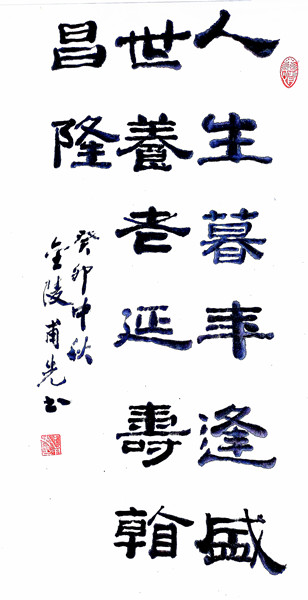 人生暮年逢盛
世養老延壽翰
昌隆
癸卯中秋
金陵甫先书